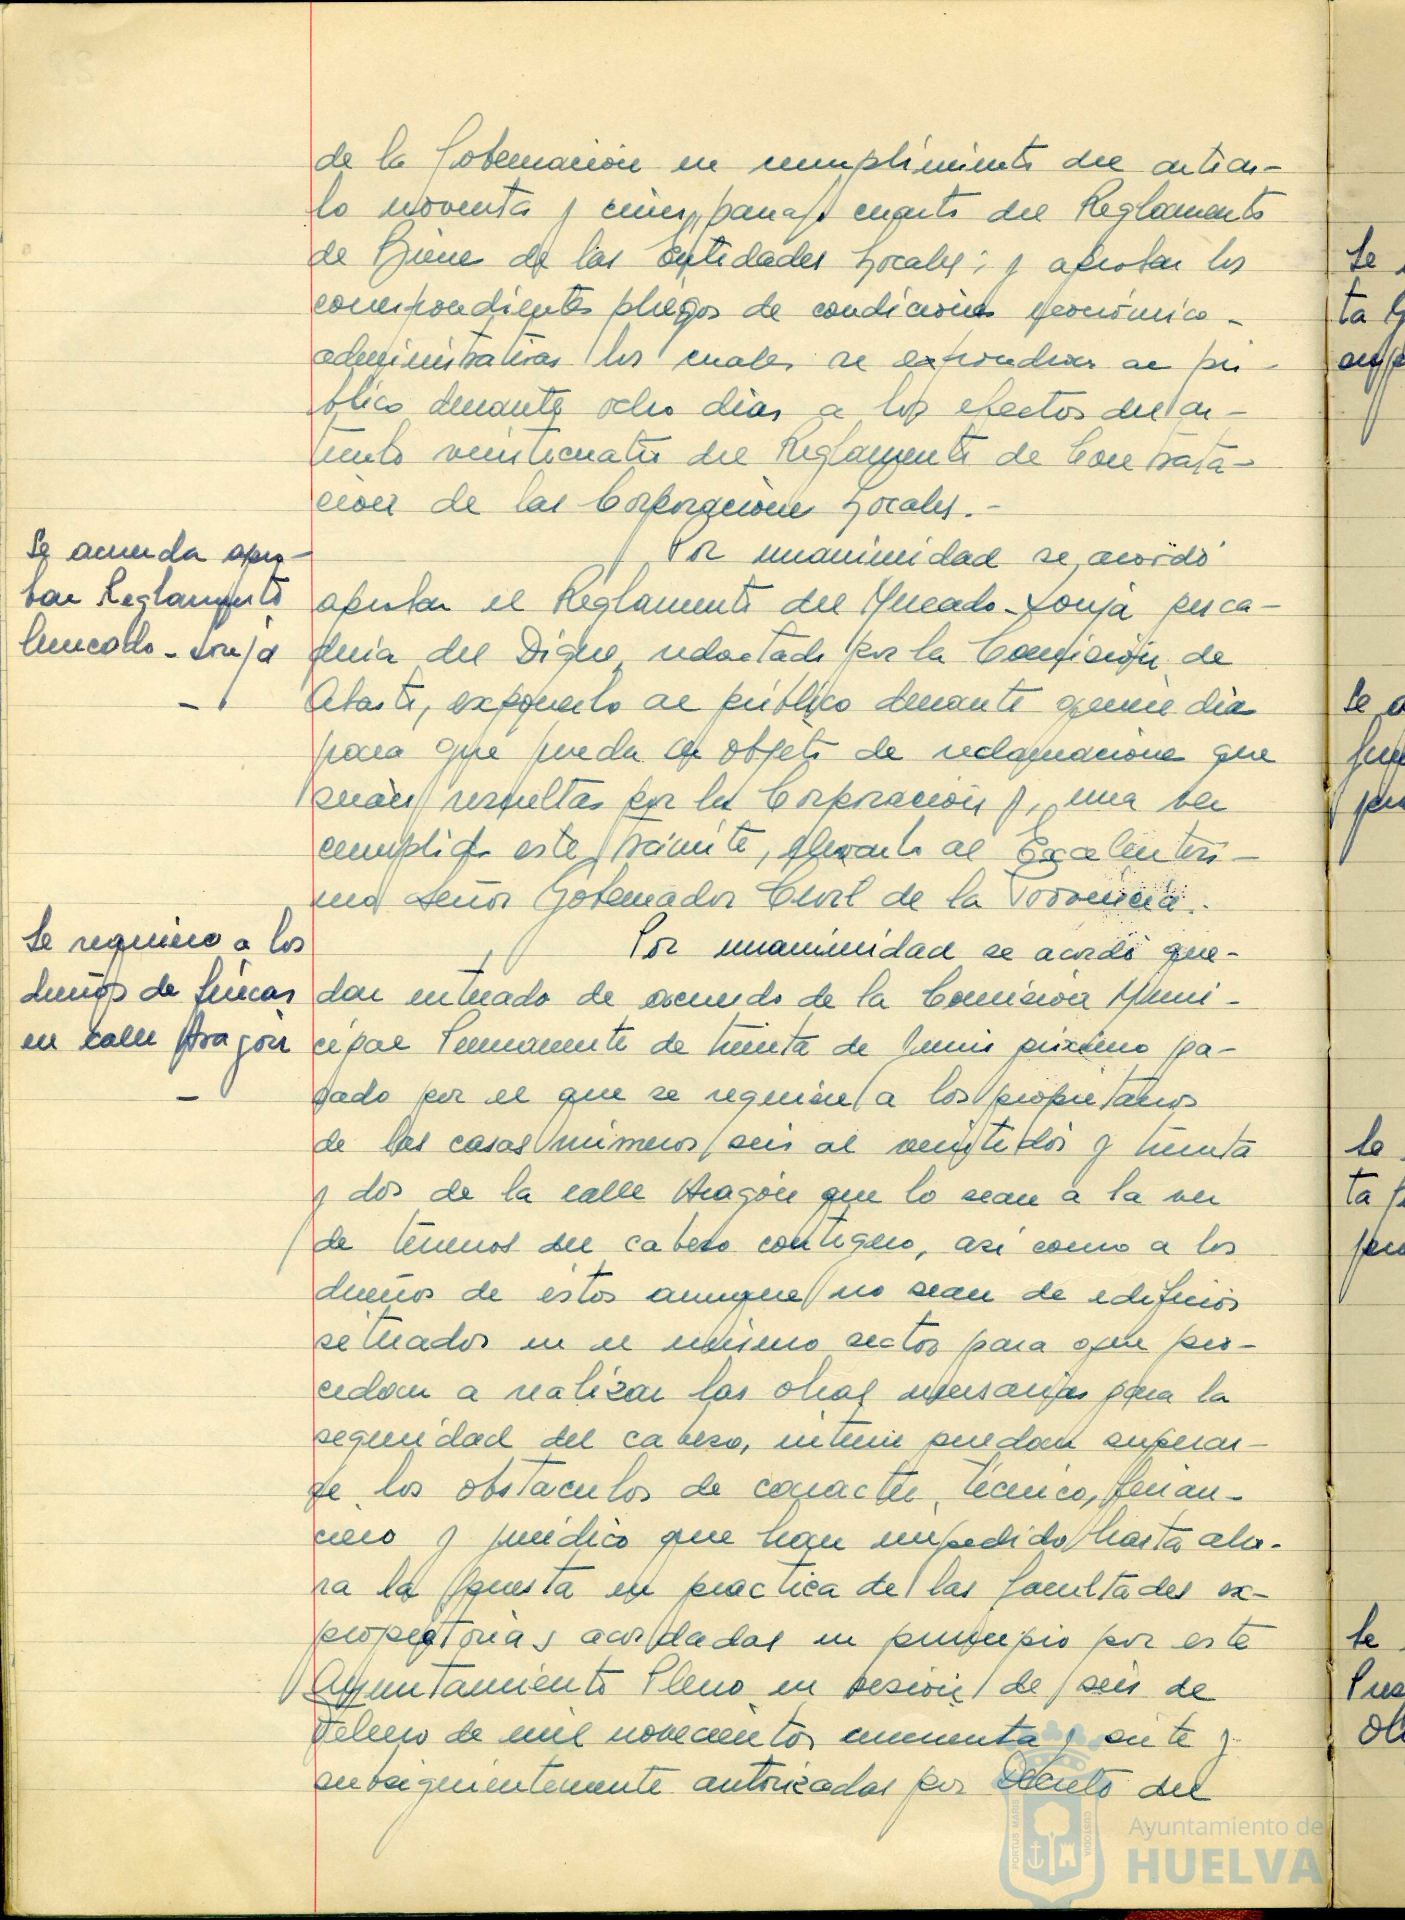 de la Gobernación en cumplimiento del artícu-
lo noventa y cinco, párrafo cuarto del Reglamento
de Bienes de las Entidades Locales; y aprobar los
correspondientes pliegos de condiciones económico-
administrativas los cuales se expondrán al pú-
blico durante ocho días a los efectos del ar-
tículo veinticuatro del Reglamento de Contrata-
ción de las Corporaciones Locales.-
Se acuerda apro-
bar Reglamento
Mercado-Lonja
-
Por unanimidad se acordó
aprobar el Reglamento del Mercado-Lonja pesca-
dería del Dique, redactado por la Comisión de
Abasto, exponerlo al público durante quince días
para que pueda ser objeto de reclamaciones que
serán resueltas por la Corporación y, una vez
cumplido este trámite, elevarlo al Excelentísi-
mo Señor Gobernador Civil de la Provincia.-
Se requiere a los
dueños de fincas
en calle Aragón
-
Por unanimidad se acordó que-
dar enterado de acuerdo de la Comisión Muni-
cipal Permanente de treinta de Junio próximo pa-
sado por el que se requiere a los propietarios
de las casas números seis al veintidós y treinta
y dos de la calle Aragón que lo sean a la vez
de terrenos del cabezo contiguo, así como a los
dueños de éstos aunque no sean de edificios
situados en el mismo sector para que pro-
cedan a realizar las obras necesarias para la
seguridad del cabezo, interin puedan superar-
se los obstáculos de caracter técnico, finan-
ciero y jurídico que han impedido hasta aho-
ra la puesta en practica de las facultades ex-
propiatorias acordadas en principio por este
Ayuntamiento Pleno en sesión de seis de
Febrero de mil novecientos cincuenta y siete y
subsiguientemente autorizadas por Decreto del
Se
ta
Se a
Se
ta
Se
PORTUS MARIS CUSTODIA
Ayuntamiento de
HUELVA